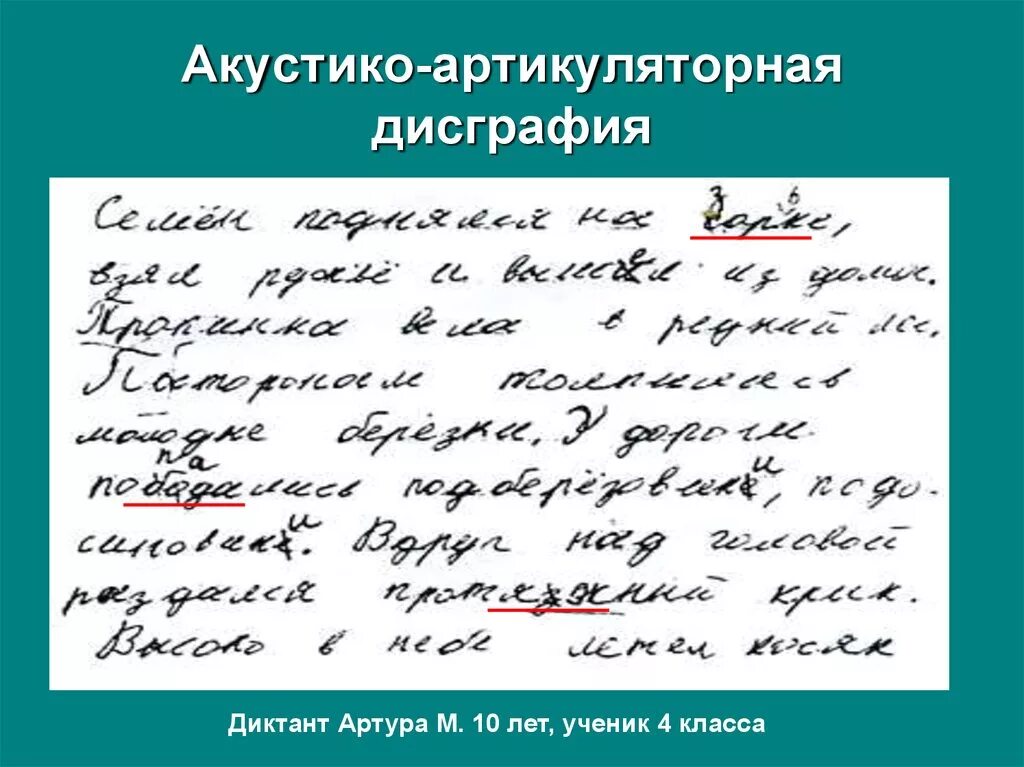 Акустико-артикуляторная
дисграфия
З ь
Семён поднялся на сорке,
взял ружьё и вышел из дома.
Тропинка вела в редкий лес.
Посторонам толпились
молодые берёзки. У дороги
п а и
пободались подберёзовике, подо-
и
синовике. Вдруг над головой
раздался протязжный крик.
Высоко в небе летел косяк
Диктант Артура М. 10 лет, ученик 4 класса